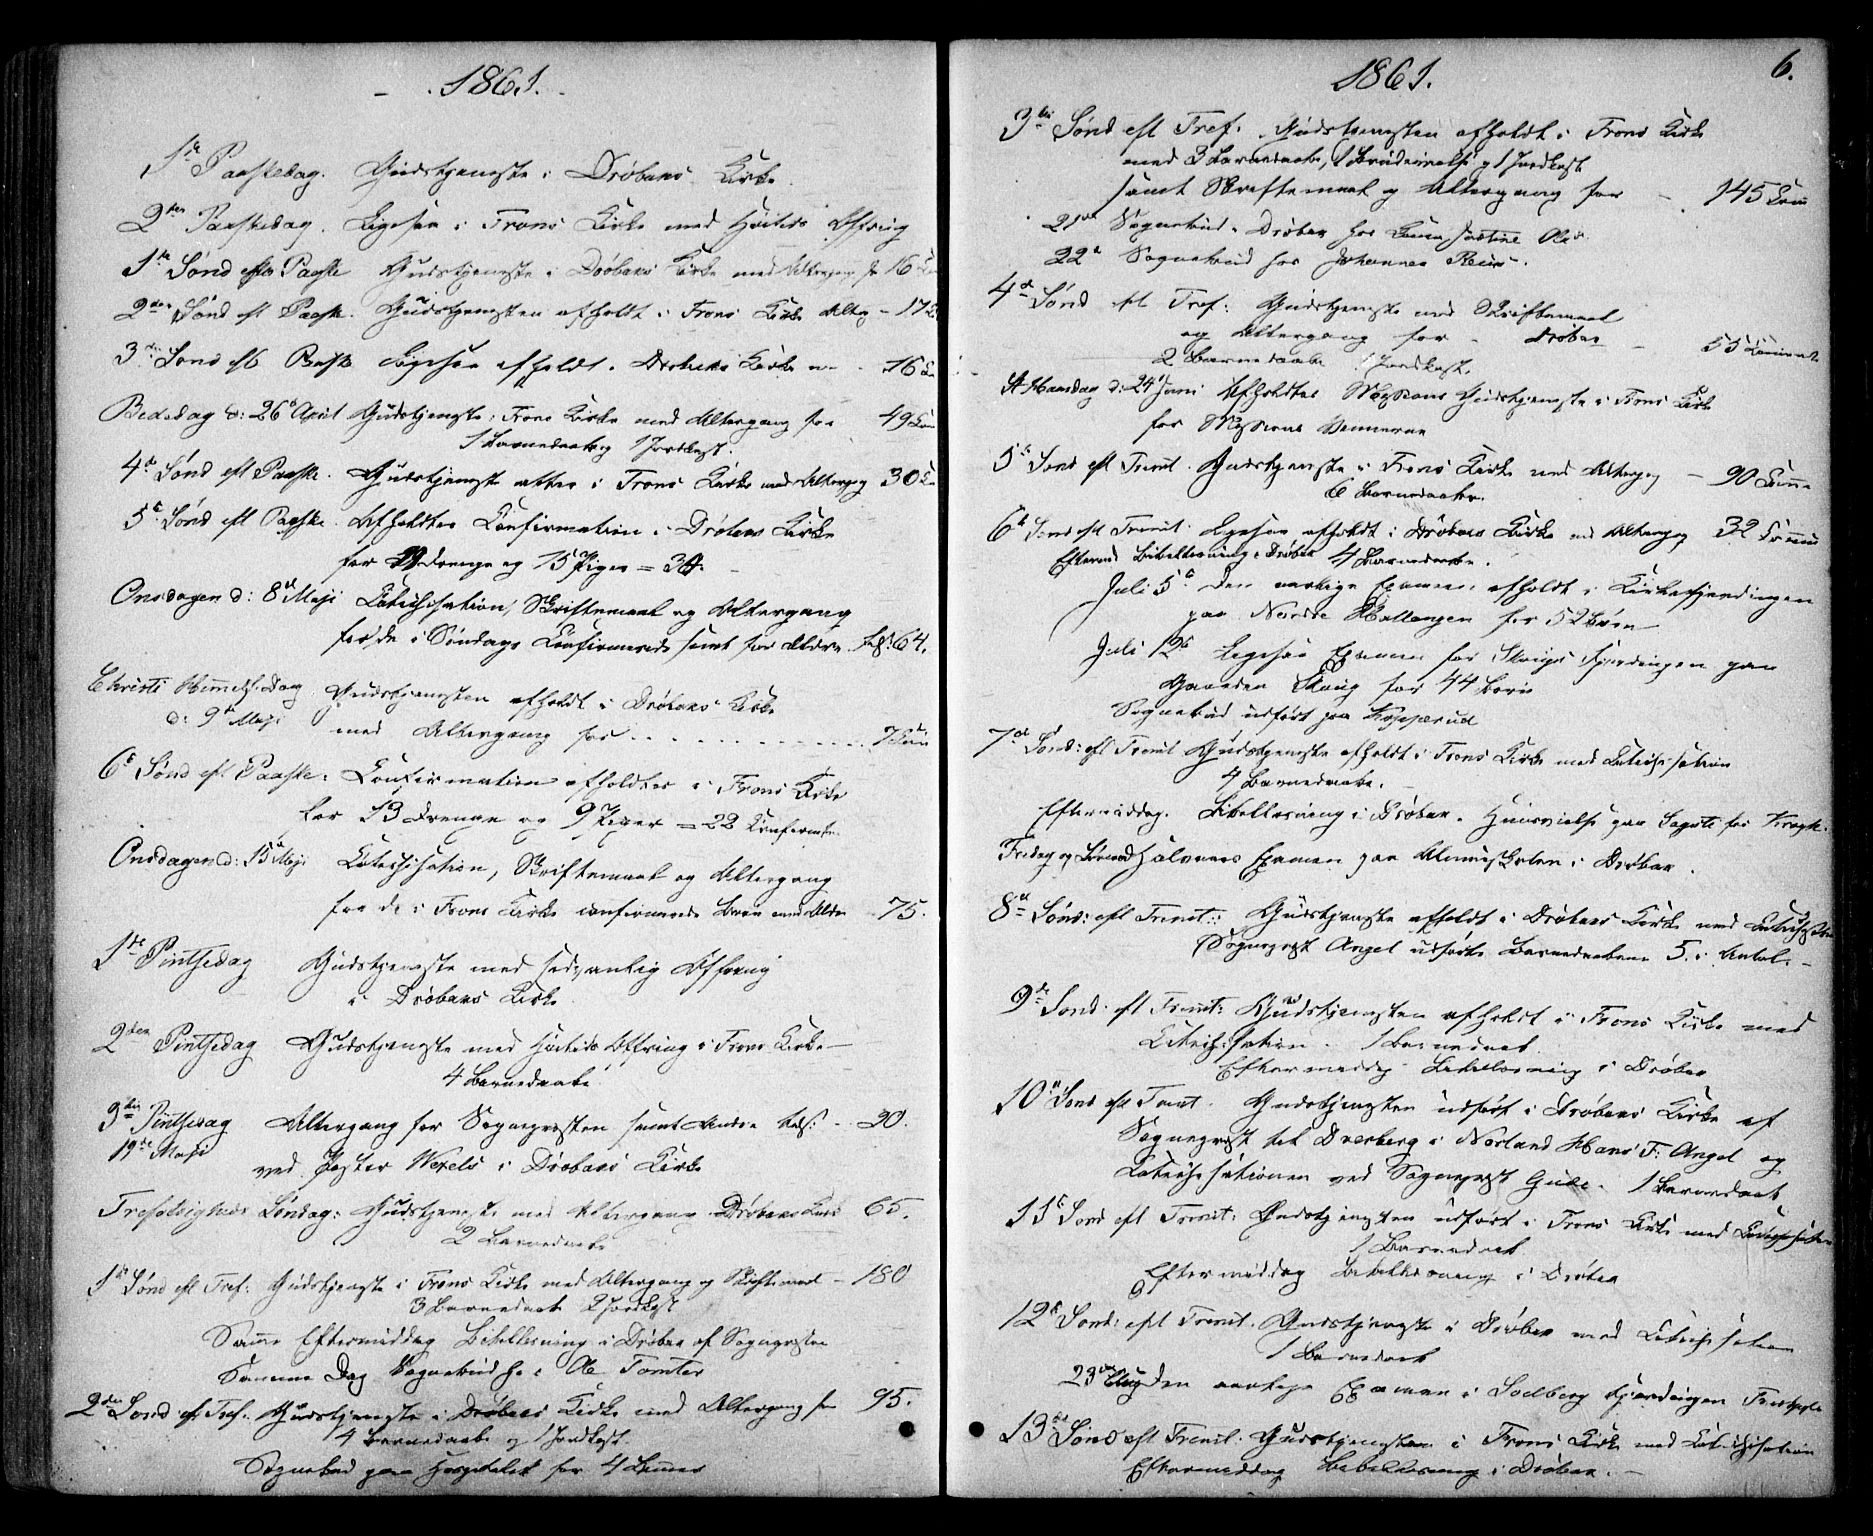 1861.
1ste Paaskedag. Gudstjeneste i Drøbaks Kirke.
2den Paaskedag. Ligesaa i Frons Kirke med Høitids Offring
1ste Sønd efter Paaske Gudstjeneste i Drøbaks Kirke med Altergang for 16
2den Sønd eft Paaske. Gudstjenesten afholdt i Frons Kirke Alterg - 17
3die Sønd eft Paaske Ligesaa afholdt i Drøbaks Kirke 16
Bededag d: 26de April Gudstjeneste i Frons Kirke med Altergang for 49
1 Barnedaab og 1 Jordkast.
4de Sønd eft Paaske. Gudstjeneste atter i Frons Kirke med Alterg 30
5te Sønd eft Paaske. Afholdtes Confirmation i Drøbaks Kirke
for Drenge og 15 Piger =
Onsdagen d: 8de Maji Catechisation, Skriftemaal og Altergang
for de i Søndags Confirmerede samt for Ældre 64.
Christi Himmelf. Dag Gudstjenesten afholdt i Drøbaks Kirke
d: 9de Maji med Altergang for 7
6te Sønd eft Paaske. Confirmation afholdtes i Frons Kirke
for 13 Drenge og 9 Piger = 22 Confirmander
Onsdagen d: 15de Maji Catechisation, Skriftemaal og Altergang
for de i Frons Kirke confirmerede Børn med Ældre 75.
1ste Pintsedag Gudstjeneste med sedvanlig Offring
i Drøbaks Kirke
2den Pintsedag Gudstjeneste med Høitids Offring i Frons Kirke
4 Barnedaabe.
3die Pintsedag Altergang for Sognepræsten samt Andre 30.
Maji ved Pastor Wexels i Drøbaks Kirke
Trefoldigheds Søndag: Gudstjeneste med Altergang Drøbaks Kirke 65.
2 Barnedaabe
1ste Sønd eft Tref: Gudstjeneste i Frons Kirke med Altergang og Skriftemaal - 180
3 Barnedaab 2 Jordkast
Samme Eftermiddag Bibellæsning i Drøbak af Sognepræsten
Samme Dag Sognebud hos Ole Tomter
2den Sønd eft Tref: Gudstjeneste i Drøbaks Kirke med Altergang for 95.
4 Barnedaabe og 1 Jordkast
Sognebud paa Hospitalet for 4 Lemmer
1861. 6.
3die Sønd eft Tref: Gudstjenesten afholdt i Frons Kirke
med 3 Barnedaabe, 1 Brudevielse og 1 Jordkast
samt Skriftemaal og Altergang for - 145
21de Sognebud i Drøbak hos Justine Ols
22de Sognebud hos Johannes
4de Sønd eft Tref: Gudstjeneste med Skriftemaal
og Altergang for - Drøbak - 55
2 Barnedaabe 1 Jordkast.
St Hansdag d: 24de Juni Afholdtes Missions Gudstjeneste i Frons Kirke
for Missions Vennerne
5te Sønd eft Trenit. Gudstjeneste i Frons Kirke med Alterg - 90
6 Barnedaaber.
6te Sønd eft Trenit. Ligesaa afholdt i Drøbaks Kirke med Alterg 32
Efterm Bibellæsning i Drøbak 4 Barnedaabe.
Juli 5te Den aarlige Examen afholdt i Kirkefjerdingen
paa Nordre Hallangen for 52 Børn
Juli 12te Ligesaa Examen for Skougs Fjerdingen paa
Gaarden Skoug for 44 Børn
Sognebud udført paa Kopperud
7de Sønd: eft Trenit Gudstjeneste afholdt i Frons Kirke med Catechisation
4 Barnedaabe.
Eftermiddag. Bibellæsning i Drøbak.
Fredag og Løverdag Examen paa Almueskolen i Drøbak.
8de Sønd: eft Trenit.: Gudstjeneste afholdt i Drøbaks Kirke med Catechisation
Sognepræst Angel udførte Barnedaabene 5. i Antal. -
9de Sønd. eft Trenit: Gudstjenesten afholdt i Frons Kirke med
Catechisation. 1 Barnedaab.
Eftermiddag Bibellæsning i Drøbak
10de Sønd eft Trenit. Gudstjenesten udført i Drøbaks Kirke af
Sognepræst til Dverberg i Norland Hans F. Angel og
Catechisationen ved Sognepræst Gude. 1 Barnedaab
11te Sønd eft Trenit: Gudstjenesten udført i Frons Kirke med Catechisation
1 Barnedaab
Eftermiddag Bibellæsning i Drøbak
12te Sønd: eft Trenit. Gudstjeneste i Drøbak med Catechisation
1 Barnedaab
23de Aug Den aarlige Examen i Solberg Fjerdingen
13de Sønd eft Trenit: Gudstjenesten i Frons Kirke med Catechisation
Eftermiddag Bibellæsning i Drøbak. -